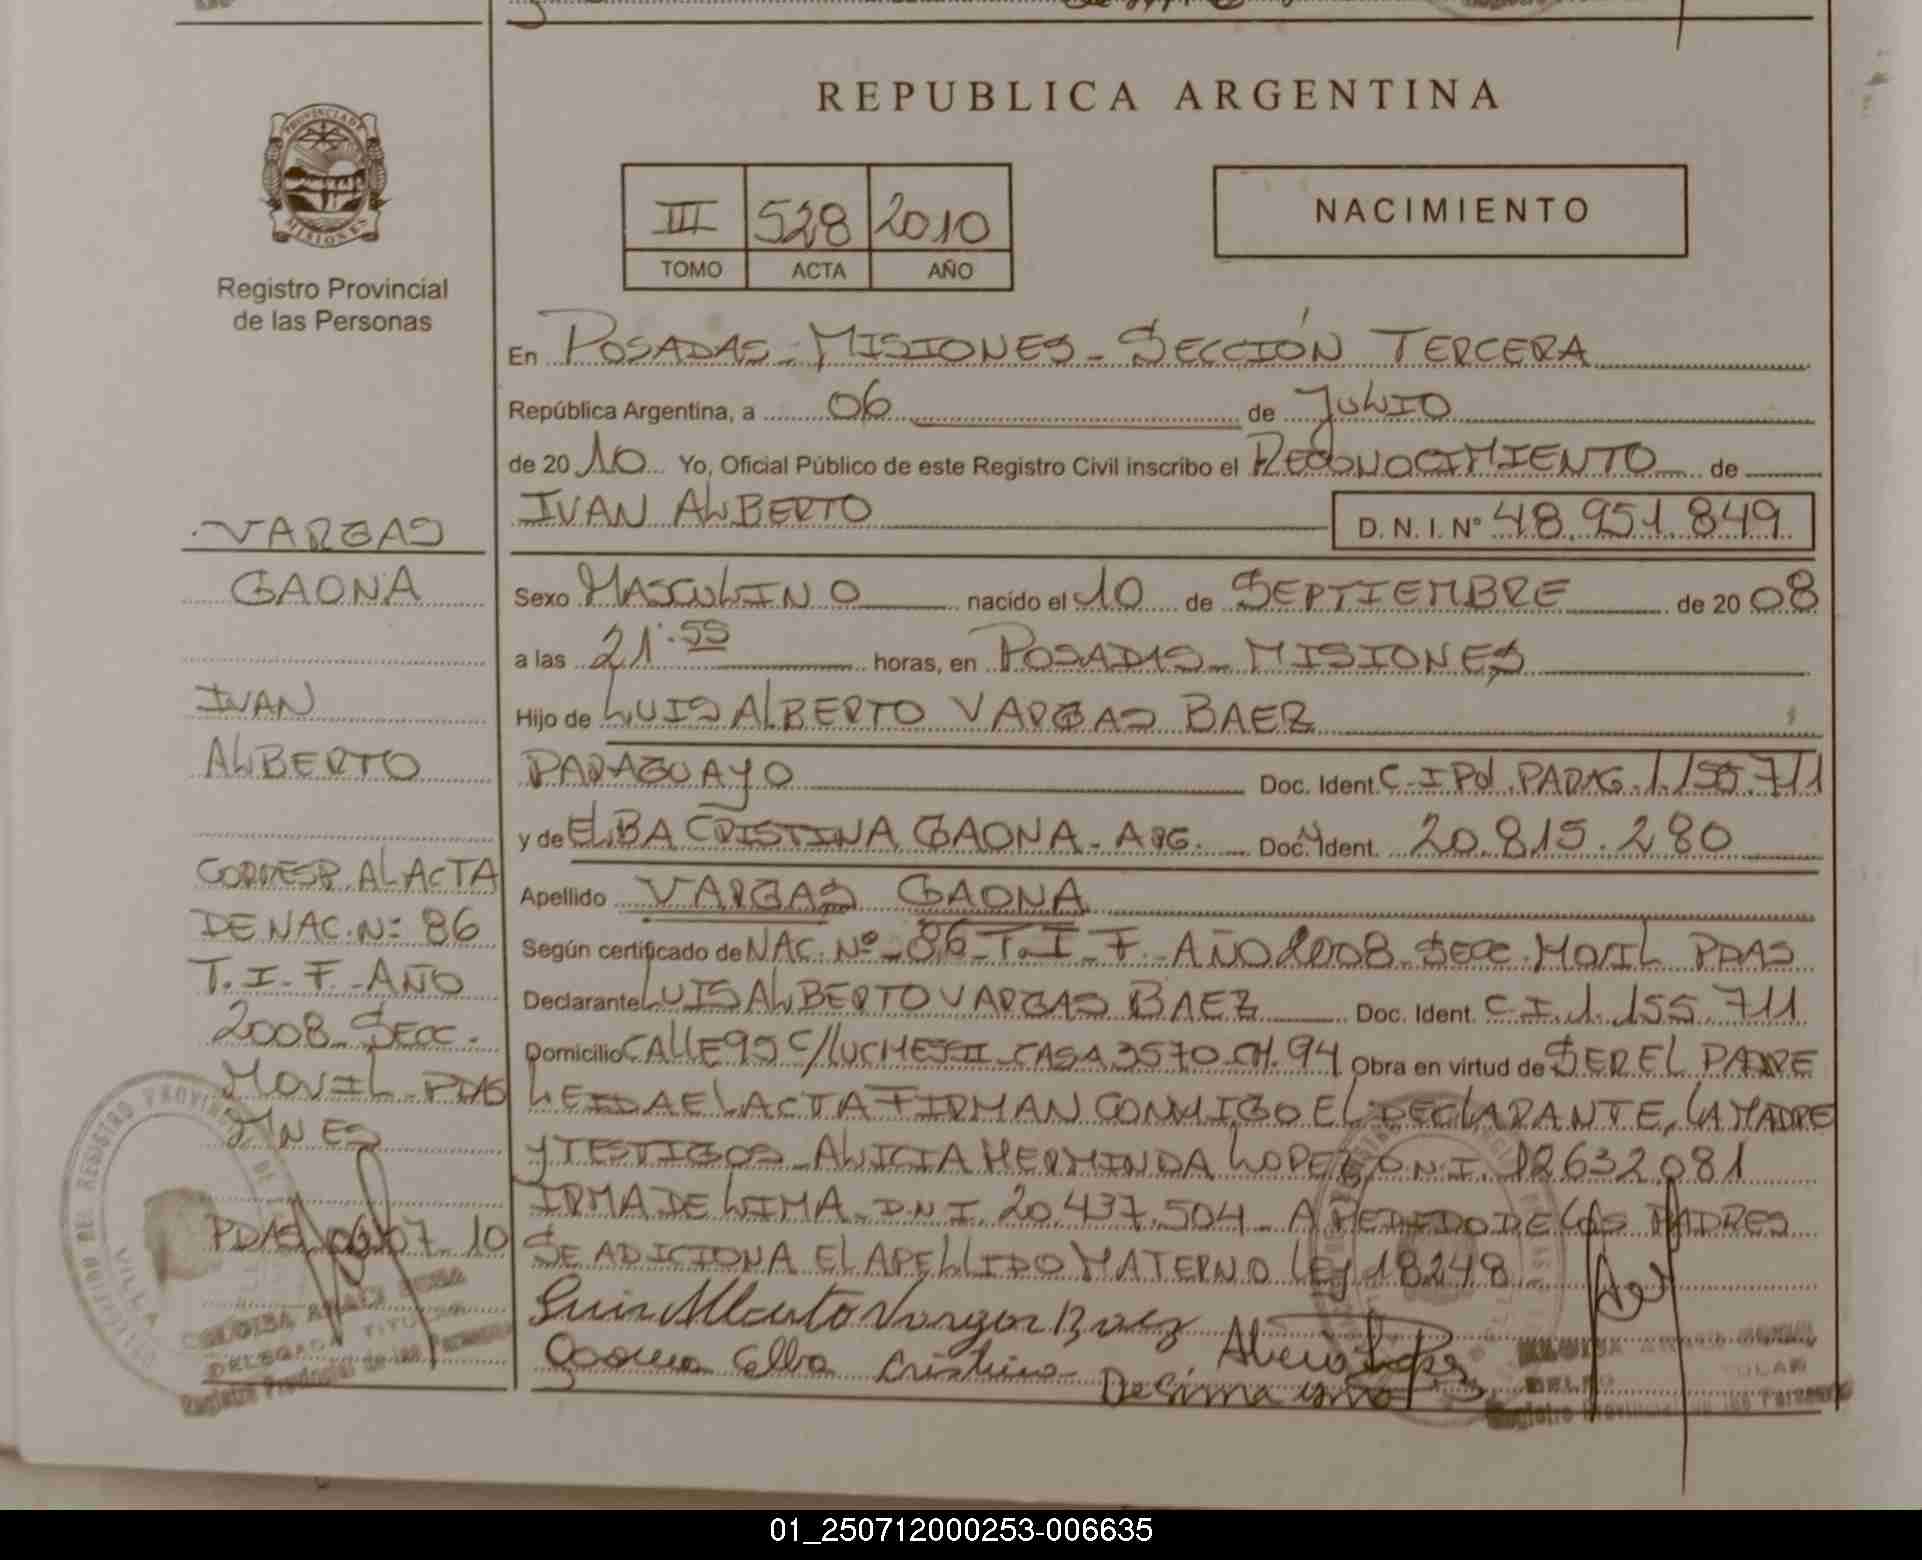 REPUBLICA ARGENTINA
PROVINCIA DE
MISIONES
Registro Provincial
de las Personas
III 528 2010
TOMO ACTA AÑO
NACIMIENTO
En POSADAS - MISIONES - SECCIÓN TERCERA
República Argentina, a 06 de JULIO
de 2010 Yo, Oficial Público de este Registro Civil inscribo el RECONOCIMIENTO de
IVAN ALBERTO D. N. I. Nº 48.951.849
Sexo MASCULINO nacido el 10 de SEPTIEMBRE de 2008
a las 21:55 horas, en POSADAS - MISIONES
Hijo de LUIS ALBERTO VARGAS BAEZ
PARAGUAYO Doc. Ident. C.I Pol. PARAG. 1.155.711
y de ELBA CRISTINA GAONA - ARG. Doc. Ident. 20.815.280
Apellido VARGAS GAONA
Según certificado de NAC. Nº 86 - T. I - F - AÑO 2008 - SECC. MOVIL PDAS
Declarante LUIS ALBERTO VARGAS BAEZ Doc. Ident. C.I. 1.155.711
Domicilio CALLE 95 C/LUCHESSI - CASA 3570 CH. 94 Obra en virtud de SER EL PADRE
LEIDA EL ACTA FIRMAN CONMIGO EL DECLARANTE, LA MADRE
Y TESTIGOS - ALICIA HERMINDA LOPEZ D.N.I. 12632081
IRMA DE LIMA - D.N.I. 20.437.504 - A PEDIDO DE LOS PADRES
SE ADICIONA EL APELLIDO MATERNO LEY 18248 -
Luis Alberto Vargas Baez
Gaona Elba Cristina
Alicia Lopez
De Lima Irma
VARGAS
GAONA
IVAN
ALBERTO
CORRESP. AL ACTA
DE NAC. Nº 86
T. I - F - AÑO
2008 - SECC.
MOVIL - PDAS
MNES
PDAS 06 07 10
DELEGADA TITULAR
Registro Provincial de las Personas
Registro Provincial de las Personas
01_250712000253-006635